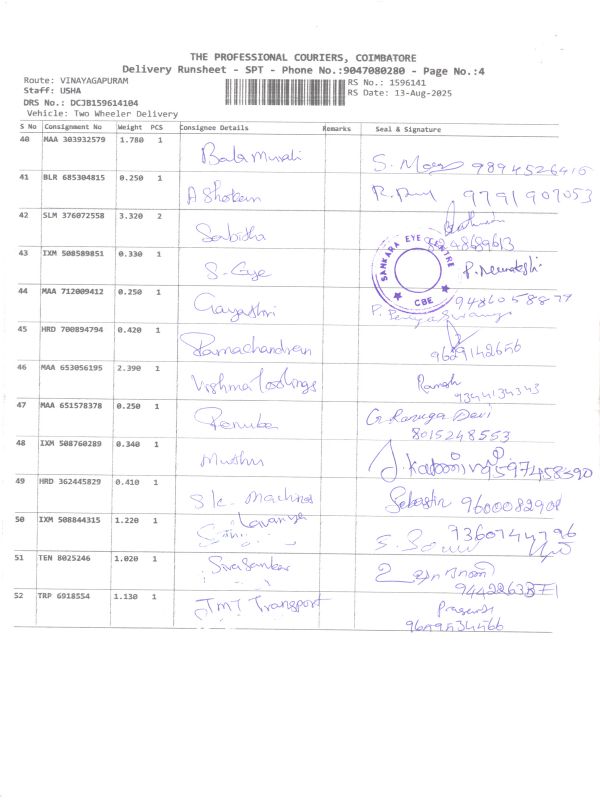 THE PROFESSIONAL COURIERS, COIMBATORE
Delivery Runsheet - SPT - Phone No.:9047080280 - Page No.:4
Route: VINAYAGAPURAM
RS No.: 1596141
Staff: USHA
RS Date: 13-Aug-2025
DRS No.: DCJB159614104
Vehicle: Two Wheeler Delivery
S No Consignment No Weight PCS Consignee Details Remarks Seal & Signature
40 MAA 303932579 1.780 1 Bala Murali 9894526415
41 BLR 685304815 0.250 1 Ashokan 9791907053
42 SLM 376072558 3.320 2 Sabitha 8248689613
SANKARA EYE CENTRE
CBE
43 IXM 508589851 0.330 1 S. Eye
44 MAA 712009412 0.250 1 Gayathri 9486058877
45 HRD 700894794 0.420 1 Ramachandran 9629142656
46 MAA 653056195 2.390 1 Ramesh
9344134343
47 MAA 651578378 0.250 1 Renuka G. Kanuga Devi
8015248553
48 IXM 508760289 0.340 1 Muthu 9597458390
49 HRD 362445829 0.410 1 S k Machines Sebastin 9600082908
50 IXM 508844315 1.220 1 Lavanya 9360744796
51 TEN 8025246 1.020 1 Sivasankar
52 TRP 6918554 1.130 1 TMT Transport